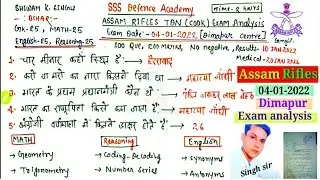 SHUBHAM K. SINGH
(BIHAR)
GK-25, MATH-25
English-25, Reasoning-25
SSS Defence Academy
TIME-2 hours
ASSAM RIFLES TBN (COOK) EXAM Analysis
Exam Date - 04-01-2022 [Dimapur centre]
100 Que, 200 marks, No negative, Result - 10 JAN 2022
Medical - 20 JAN 2022
1. चार मीनार कहाँ स्थित है → हैदराबाद
2. करो या मरो का नारा किसने दिया था → महात्मा गाँधी
3. भारत के प्रथम प्रधानमंत्री कौन थे → पंडित जवाहर लाल नेहरू
4. भारत का राष्ट्रपिता किसे कहा जाता है → महात्मा गाँधी
5. अंग्रेजी वर्णमाला में कितने अक्षर होते हैं → 26
MATH:-
Reasoning:-
English:-
→ Geometry
→ Coding-Decoding
→ Synonyms
→ Trigonometry
→ Number Series
→ Antonyms
Assam Rifles
04-01-2022
Dimapur
Exam analysis
Singh sir